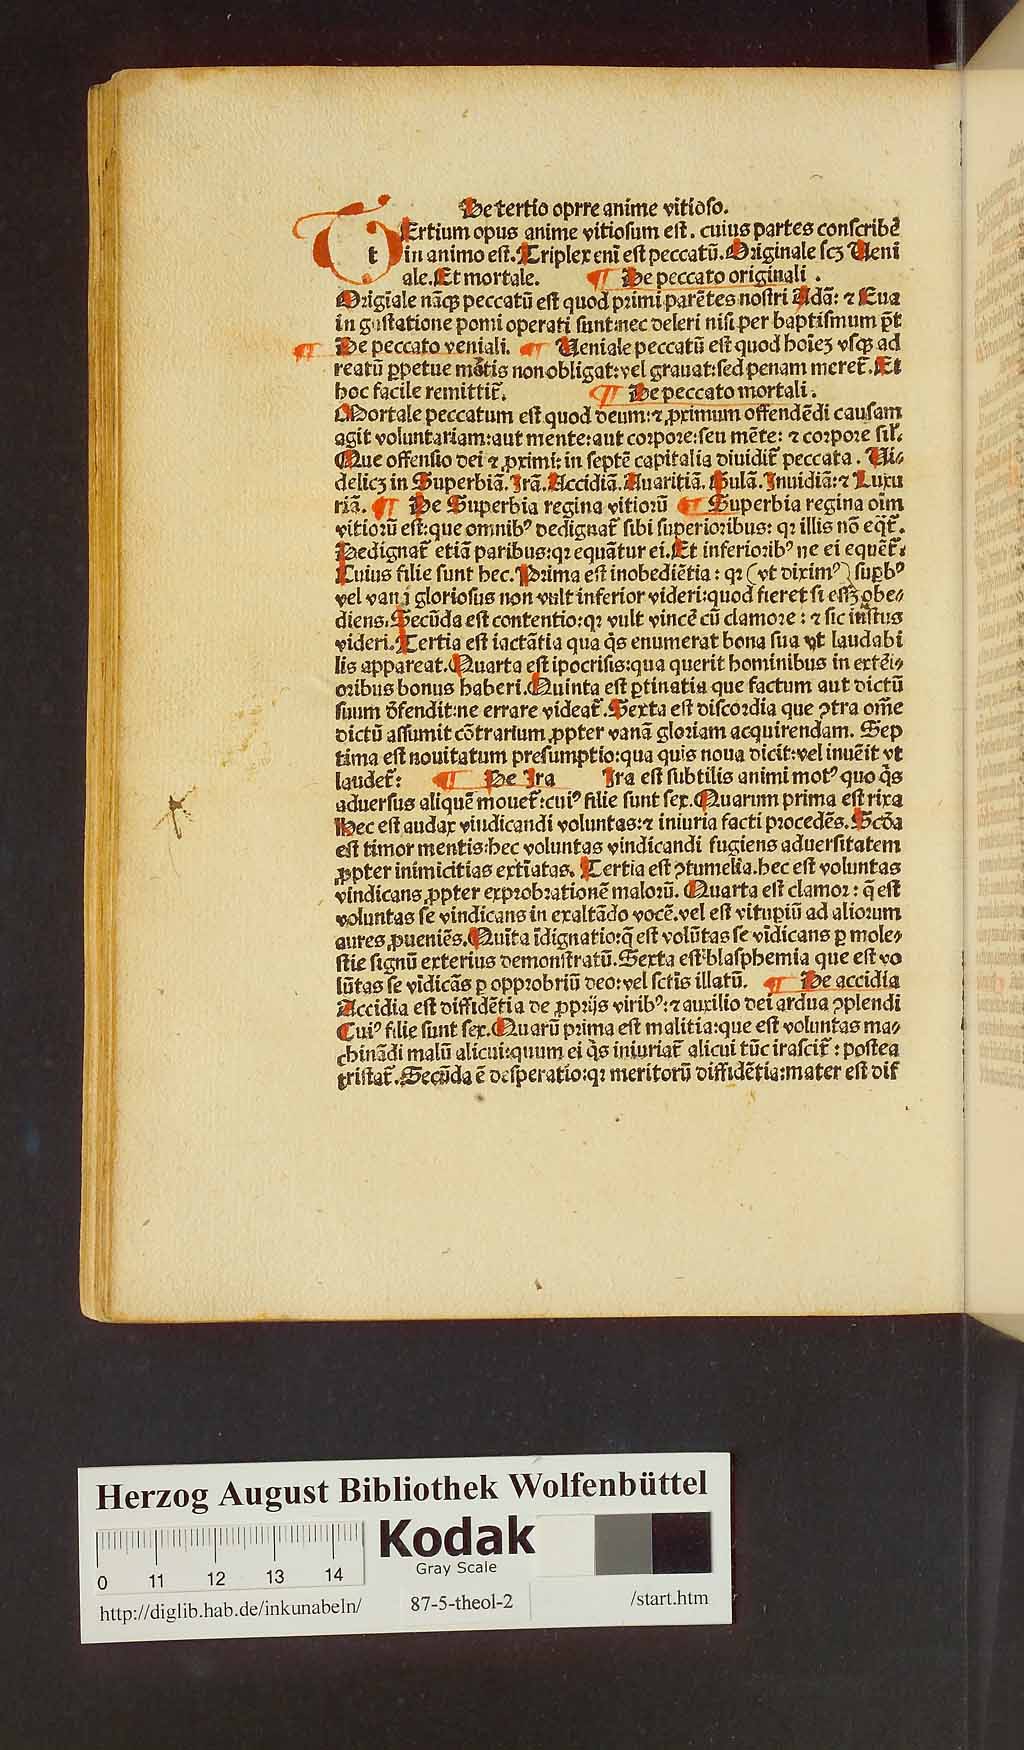 De tertio oprre anime vitioso.
tErtium opus anime vitiosum est. cuius partes conscribē
in animo est. Triplex enī est peccatū. Originale scꝫ Ueni
ale. Et mortale. ¶ De peccato originali .
Origiale nāqꝫ peccatū est quod primi parētes nostri Adā: ⁊ Eua
in gustatione pomi operati sunt: nec deleri nisi per baptismum p̄t
¶ De peccato veniali. ¶ Ueniale peccatū est quod hoīeꝫ vsqꝫ ad
reatū ꝑpetue mōtis non obligat: vel grauat: sed penam meret̄. Et
hoc facile remittit̄. ¶ De peccato mortali .
Mortale peccatum est quod deum: ⁊ ꝓximum offendēdi causam
agit voluntariam: aut mente: aut corpore: seu mēte: ⁊ corpore sil̄.
Que offensio dei ⁊ ꝓximi: in septē capitalia diuidit̄ peccata . Ui⸗
delicꝫ in Superbiā. Irā. Accidiā. Auaritiā. Gulā. Inuidiā: ⁊ Luxu
riā. ¶ De Superbia regina vitiorū ¶ Superbia regina oīm
vitiorū est: que omnibꝰ dedignat̄ sibi superioribus: qꝛ illis nō eq̄t̄.
Dedignat̄ etiā paribus: qꝛ equāntur ei. Et inferioribꝰ ne ei equēt̄:
Cuius filie sunt hec. Prima est inobediētia: qꝛ (vt diximꝰ) suꝑbꝰ
vel vani gloriosus non vult inferior videri: quod fieret si essꝫ obe⸗
diens. Secūda est contentio: qꝛ vult vincē cū clamore: ⁊ sic iustus
videri. Tertia est iactātia qua q̄s enumerat bona sua vt laudabi
lis appareat. Quarta est ipocrisis: qua querit hominibus in exteri⸗
oribus bonus haberi. Quinta est ꝑtinatia que factum aut dictū
suum d̄fendit: ne errare videat̄. Sexta est discordia que ꝯtra om̄e
dictū assumit cōtrarium ꝓpter vanā gloriam acquirendam. Sep
tima est nouitatum presumptio: qua quis noua dicit: vel inuēit vt
laudet̄: ¶ De Ira Ira est subtilis animi motꝰ quo q̄s
aduersus aliquē mouet̄: cuiꝰ filie sunt sex. Quarum prima est rixa
Hec est audax viudicandi voluntas: ⁊ iniuria facti procedēs. Scōa
est timor mentis: hec voluntas vindicandi fugiens aduersitatem
ꝓpter inimicitias extīatas. Tertia est ꝯtumelia. hec est voluntas
vindicans ꝓpter exprobrationē malorū. Quarta est clamor: q̄ est
voluntas se vindicans in exaltādo vocē. vel est vituꝑiū ad aliorum
aures ꝓueniēs. Quīta īdignatio: q̄ est volūtas se vīdicans ꝑ mole⸗
stie signū exterius demonstratū. Sexta est blasphemia que est vo
lūtas se vīdicās ꝑ opprobriū deo: vel sctīs illatū. ¶ De accidia
Accidia est diffidētia de ꝓprijs viribꝰ: ⁊ auxilio dei ardua ꝯplendi
Cuiꝰ filie sunt sex. Quarū prima est malitia: que est voluntas ma⸗
chināndi malū alicui: quum ei q̄s iniuriat̄ alicui tūc irascit̄: postea
tristat̄. Secūda ē desperatio: qꝛ meritorū diffidētia: mater est dif
Herzog August Bibliothek Wolfenbüttel
0 11 12 13 14
Kodak
Gray Scale
http://diglib.hab.de/inkunabeln/ 87-5-theol-2 /start.htm